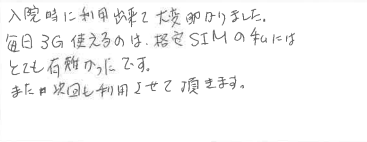 入院時に利用出来て大変助かりました。
毎日3G使えるのは、格安SIMの私には
とても有難かったです。
また次回も利用させて頂きます。